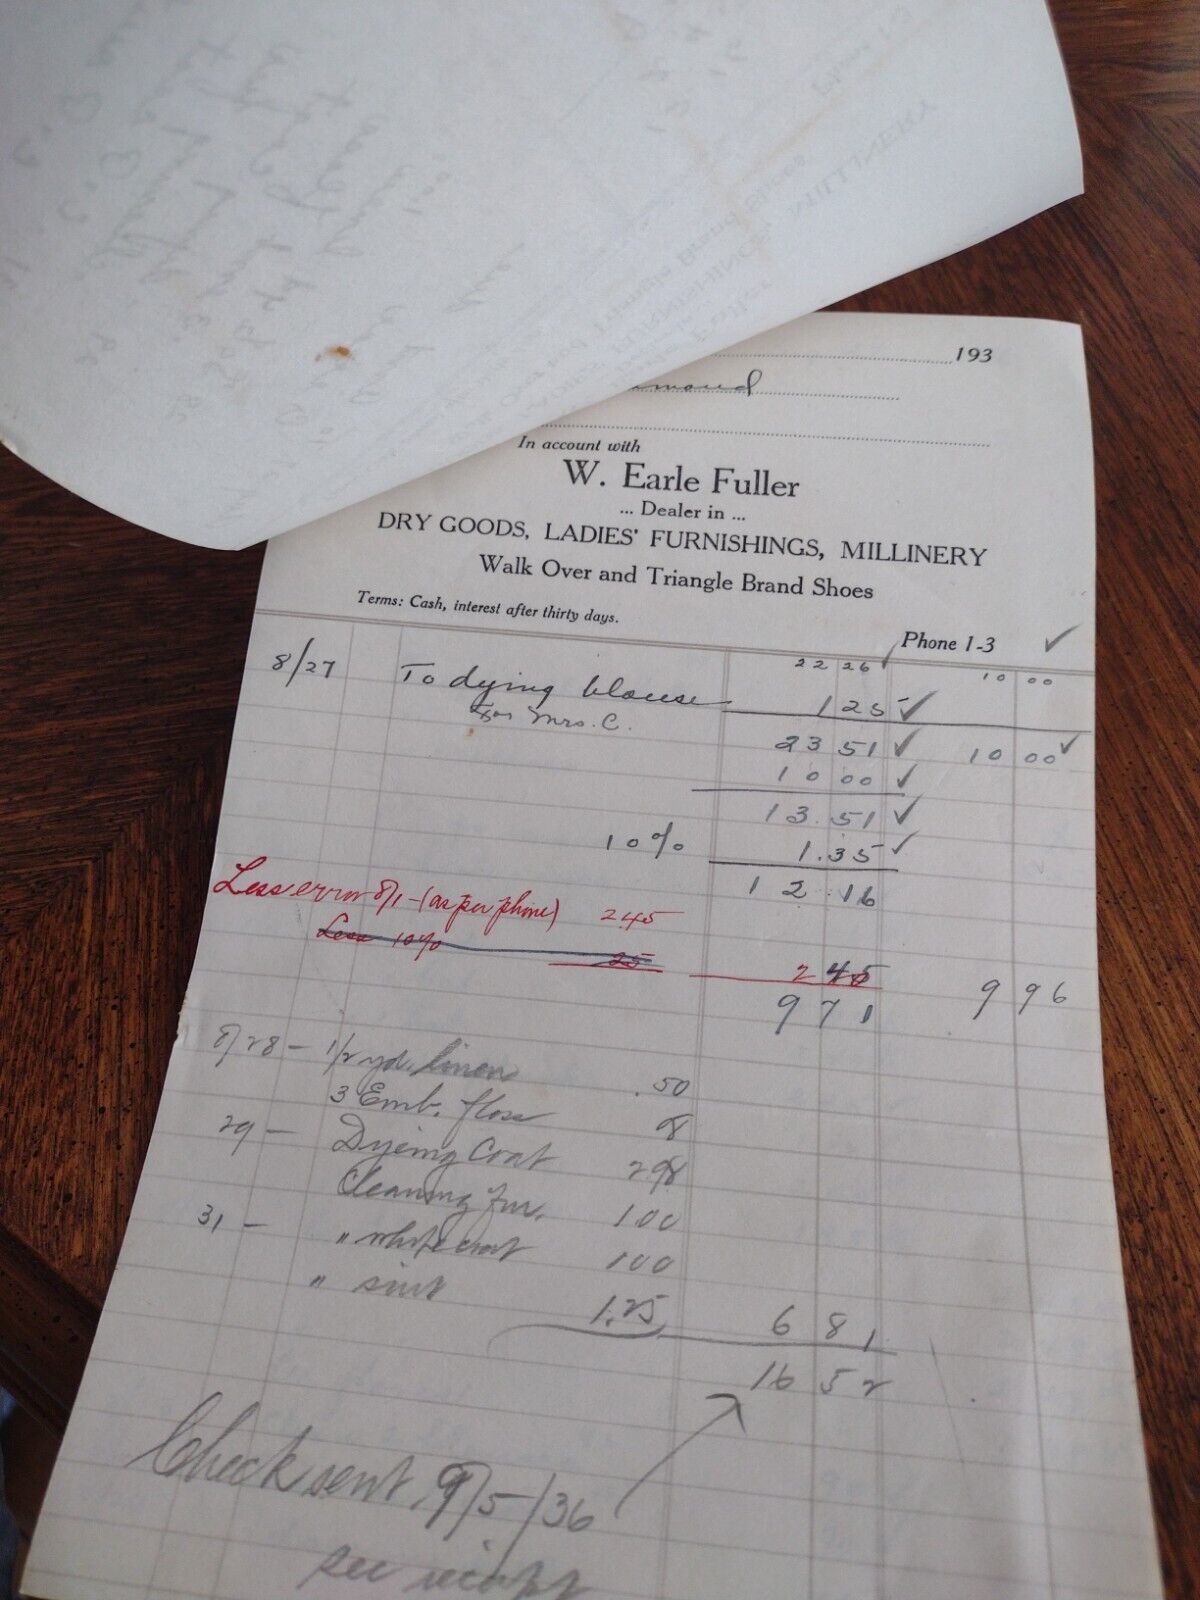 193
In account with
W. Earle Fuller
... Dealer in ...
DRY GOODS, LADIES' FURNISHINGS, MILLINERY
Walk Over and Triangle Brand Shoes
Terms: Cash, interest after thirty days.
Phone 1-3 ✓
22 26 ✓ 10 00
8/27 To dying blouse 1 25 ✓
For Mrs. C.
23 51 ✓ 10 00 ✓
10 00 ✓
13.51 ✓
10% 1.35 ✓
12.16
Less error 8/1 - (as per phone) 2.45
Less 10% 25
2 45 9 96
9 71
8/28 - 1/2 yd. linen .50
3 Emb. floss 8
29 - Dyeing Coat 2.98
Cleaning fur. 1 00
31 - " white coat 1 00
" suit 1.25 6 81
16 52
Check sent 9/5/36
see receipt